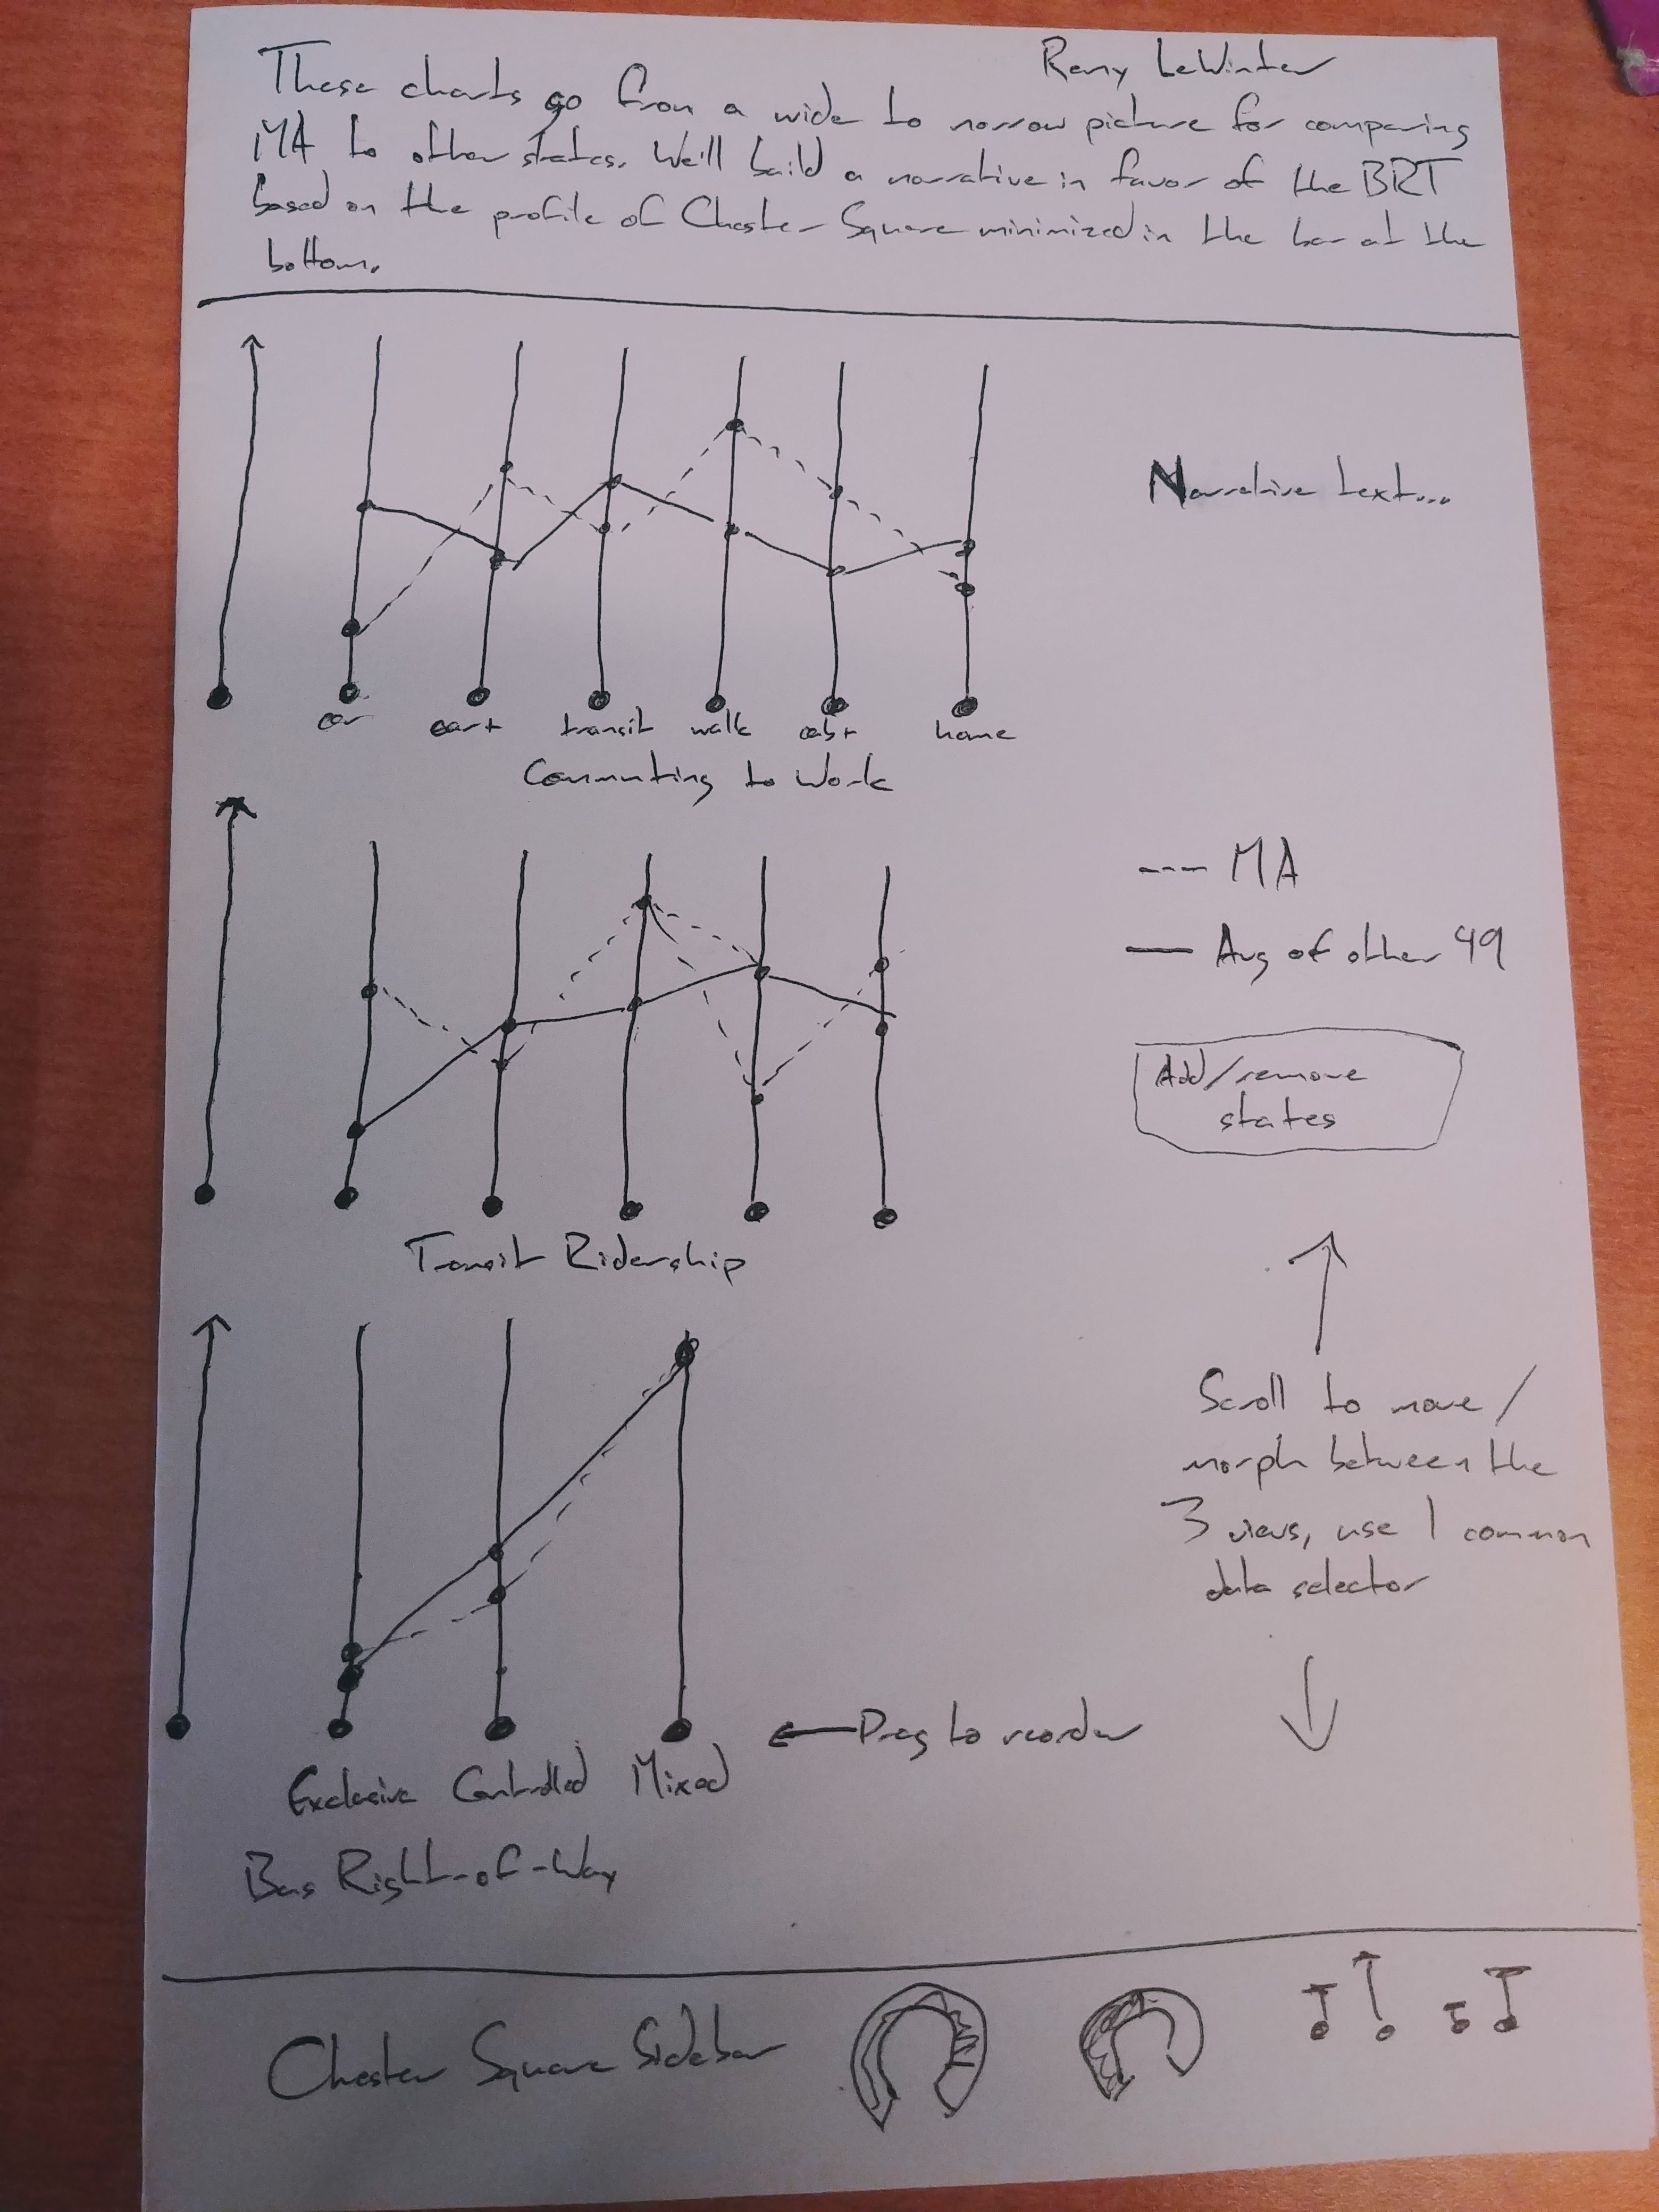 Remy LeWinter
These charts go from a wide to narrow picture for comparing
MA to other states. We'll build a narrative in favor of the BRT
based on the profile of Chester Square minimized in the bar at the
bottom.
Narrative text...
car car+ transit walk cab+ home
Commuting to Work
--- MA
— Avg of other 49
Add/remove
states
Transit Ridership
Scroll to move/
morph between the
3 views, use 1 common
data selector
← Drag to reorder
Exclusive Controlled Mixed
Bus Right-of-Way
Chester Square Sidebar